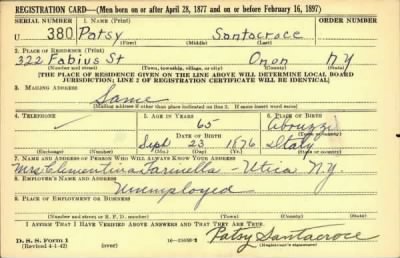 REGISTRATION CARD—(Men born on or after April 28, 1877 and on or before February 16, 1897)
SERIAL NUMBER 1. NAME (Print) ORDER NUMBER
U 380 Patsy Santacroce
(First) (Middle) (Last)
2. PLACE OF RESIDENCE (Print)
322 Fabius St Onon N Y
(Number and street) (Town, township, village, or city) (County) (State)
[THE PLACE OF RESIDENCE GIVEN ON THE LINE ABOVE WILL DETERMINE LOCAL BOARD
JURISDICTION; LINE 2 OF REGISTRATION CERTIFICATE WILL BE IDENTICAL]
3. MAILING ADDRESS
Same
[Mailing address if other than place indicated on line 2. If same insert word same]
4. TELEPHONE 5. AGE IN YEARS 6. PLACE OF BIRTH
65 Abruzzi
DATE OF BIRTH (Town or county)
Sept 23 1876 Italy
(Exchange) (Number) (Mo.) (Day) (Yr.) (State or country)
7. NAME AND ADDRESS OF PERSON WHO WILL ALWAYS KNOW YOUR ADDRESS
Mrs Clementina Farinella - Utica N.Y.
8. EMPLOYER'S NAME AND ADDRESS
Unemployed
9. PLACE OF EMPLOYMENT OR BUSINESS
(Number and street or R. F. D. number) (Town) (County) (State)
I AFFIRM THAT I HAVE VERIFIED ABOVE ANSWERS AND THAT THEY ARE TRUE.
D. S. S. Form 1
(Revised 4-1-42) (over) Patsy Santacroce
(Registrant's signature)